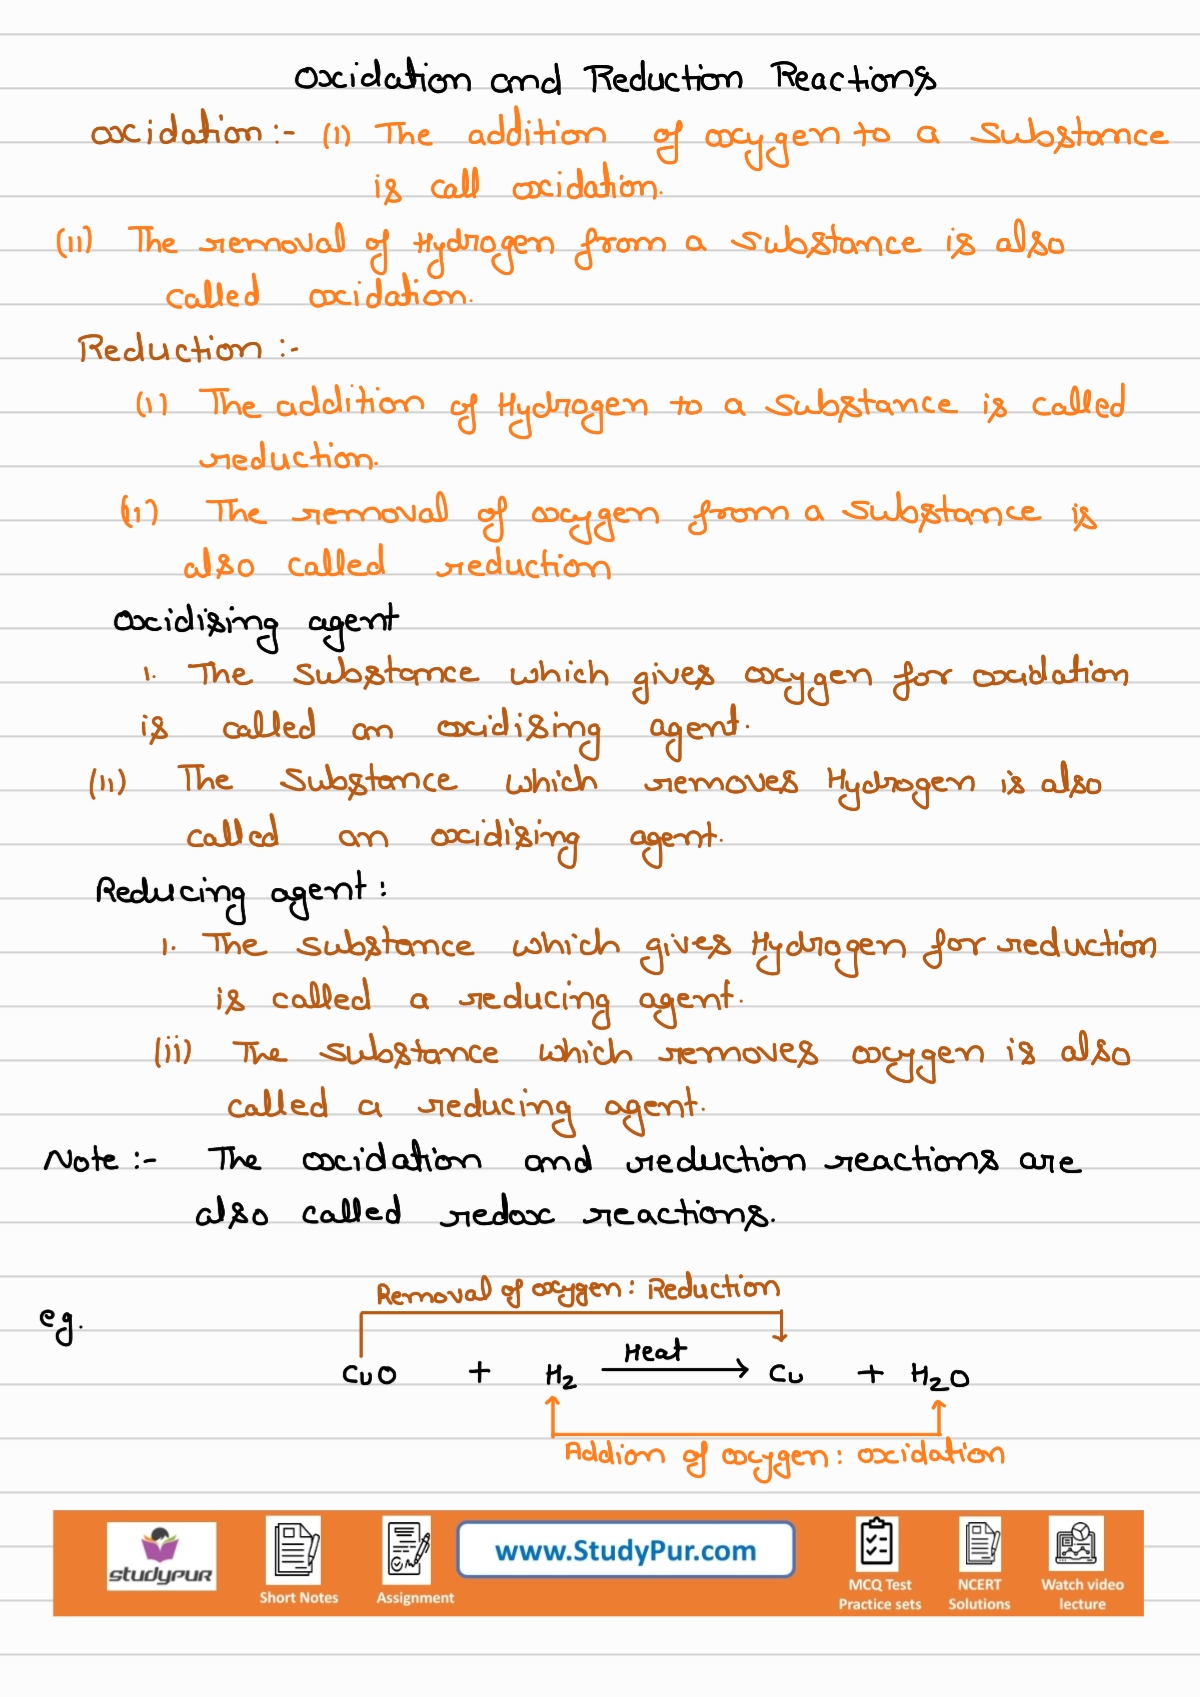 Oxidation and Reduction Reactions
oxidation :- (1) The addition of oxygen to a substance
is call oxidation.
(11) The removal of Hydrogen from a substance is also
called oxidation.
Reduction :-
(1) The addition of Hydrogen to a substance is called
reduction.
(1) The removal of oxygen from a substance is
also called reduction
Oxidising agent
1. The substance which gives oxygen for oxidation
is called an oxidising agent.
(11) The substance which removes Hydrogen is also
called an oxidising agent.
Reducing agent :
1. The substance which gives Hydrogen for reduction
is called a reducing agent.
(ii) The substance which removes oxygen is also
called a reducing agent.
Note :- The oxidation and reduction reactions are
also called redox reactions.
Removal of oxygen : Reduction
eg.
Heat
CuO + H₂ → Cu + H₂O
Addion of oxygen : oxidation
studypur
Short Notes
Assignment
www.StudyPur.com
MCQ Test
Practice sets
NCERT
Solutions
Watch video
lecture